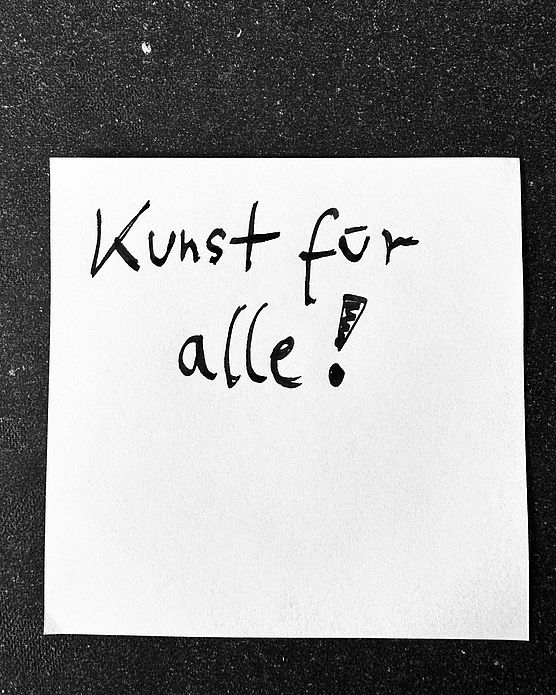 Kunst für
alle!